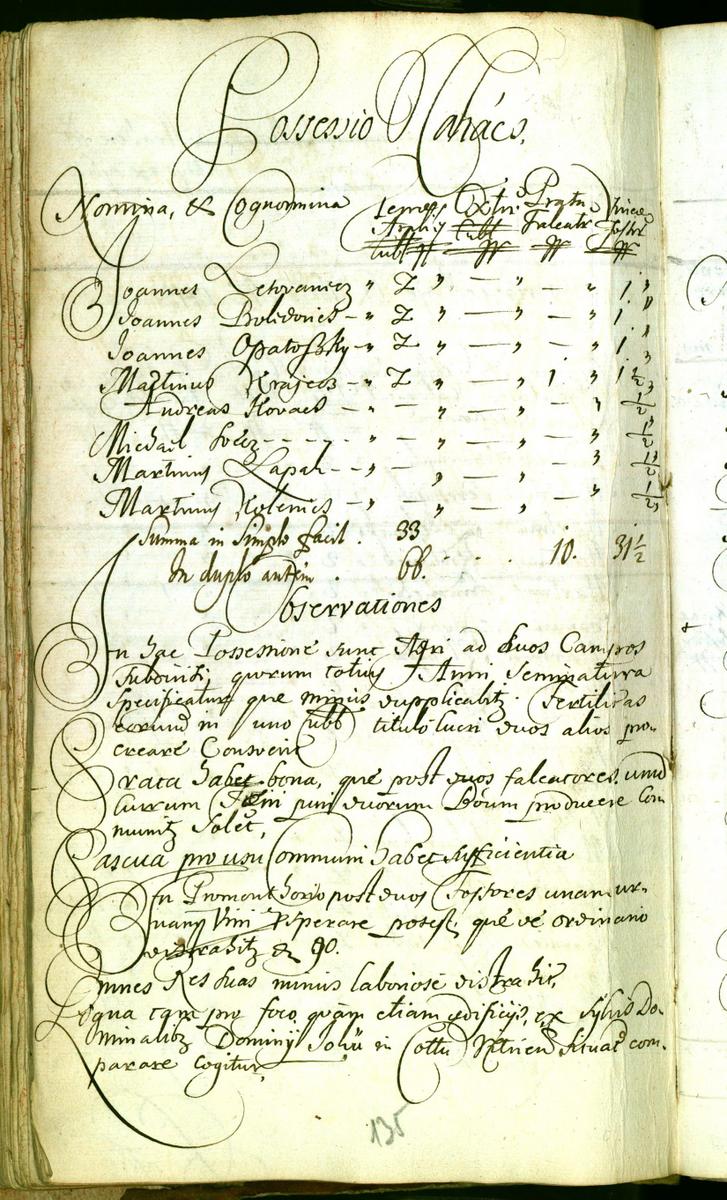 Possessio Kohács.
Nomina, & Cognomina
Joannes Letovanecz " 2 " — " — " 1 "
Joannes Bolidones — " 2 " — " — " 1 "
Joannes Opatofszky — " 2 " — " — " 1 "
Martinus Krajecz — " 2 " — " 1. " 1 ½ "
Andreas Kovacs — " — " — " — " ½ "
Michael — " — " — " — " ½ "
Martinus Lapah — " — " — " — " ½ "
Martinus Kolenics — " — " — " — " ½ "
Summa in Simplo facit . 33
In duplo autem . 66. . . . 10. 31 ½
Observationes
In hac Possessione sunt Agri ad duos Campos
subdivisi, quorum totius Anni Seminatura
specificatur que minus dupplicabitz. Fertilitas
eorund in uno Cubb titulo lucri duos alios pro-
creare Consvevit
Prata habet bona, que post duos falcatores unum
Currum Foeni puri duorum Boum producere Com
munitz Solet,
Pascua pro usu Communi habet sufficientia
In Promonthorio post duos Fossores unam ur-
nam Vini sperare potest, que ordinarie
distrahitz d 90.
Omnes Res suas minus laboriose distrahit,
Ligna tam pro foco, quam etiam edificijs, ex Sylvis Do-
minalibz Dominij in Cottu Nitrien Situat com-
parare cogitur,
135